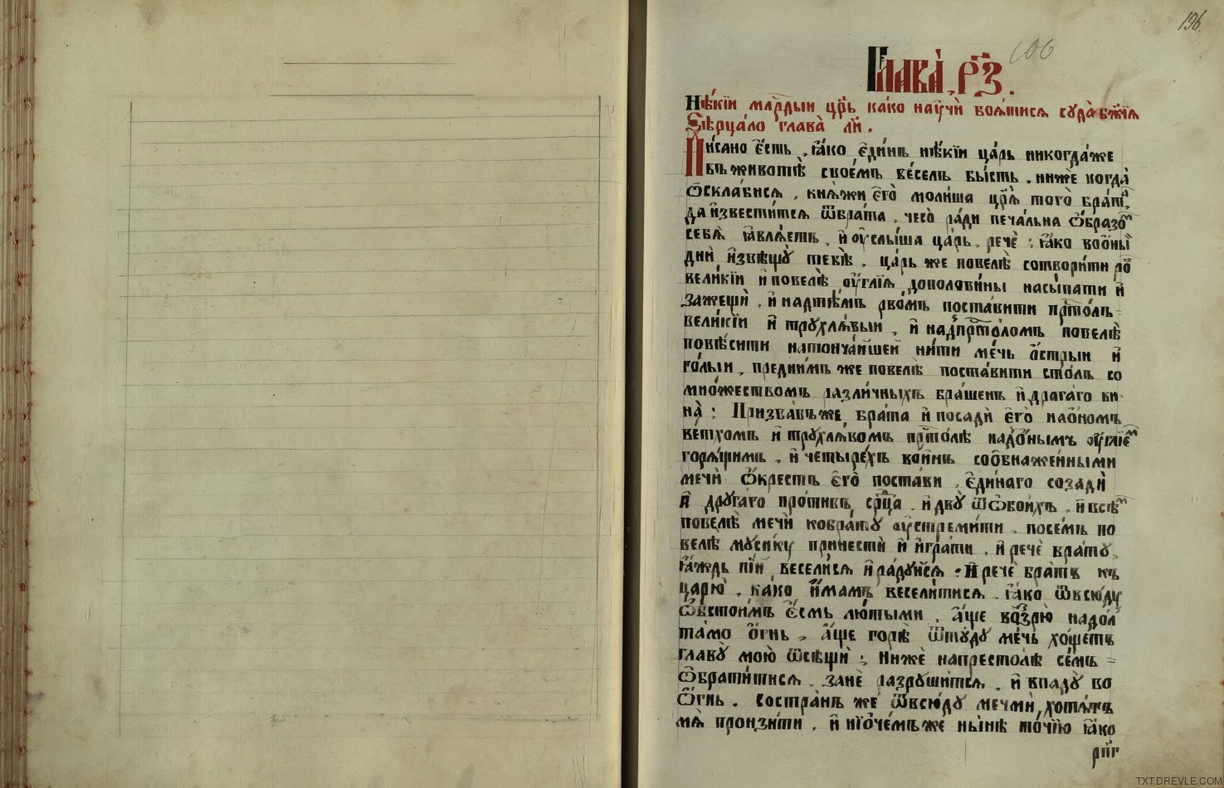 196
106
Глава̀ р҃з.
Нѣ́кїи млⷭ҇рдыи цр҃ь ка́ко научѝ боѧ́тисѧ суда̀ бж҃їѧ
Ѕѣрца́ло глава̀ ли҃.
Писано е҆́сть , ꙗ҆́ко є҆ди́нъ нѣ́кїи ца́рь никогда́же
въ животѣ̀ своє́мъ ве́селъ бы́сть . ниже когда̀
ѡ҆склабисѧ . кнѧ́жи є҆го̀ моли́ша цр҃ѧ̀ того̀ бра́та ,
да и҆звести́тсѧ ѿбра́та , чесо̀ ра́ди печа́льна ѡ҆́бразоⷨ
себѐ ꙗ҆влѧ́етъ . и҆ ѹ҆слы́ша ца́рь , речѐ : ꙗ҆́ко во о҆́ны
дни и҆звѣщꙋ̀ тебѣ̀ . ца́рь же повелѣ̀ сотвори́ти ро́
вели́кїи и҆ повелѣ̀ ѹ҆́глїѧ дополови́ны насы́пати и҆
зажещѝ , и҆ надтѣ́мъ рвомъ поста́вити прⷭ҇то́лъ
вели́кїи и҆ трꙋхлѧ́выи , и҆ над̾прⷭ҇то́ломъ повелѣ̀
повѣ́сити натонча́ишей ни́ти ме́чь ѻ҆́стрыи и҆
го́лыи , предни́мъ же повелѣ̀ поста́вити сто́лъ со
мно́жествомъ разли́чныхъ бра́шенъ и҆ драга́го ви
на̀ : Призва́въ же бра́та и҆ посадѝ є҆го̀ на о҆́номъ
ветхомъ и҆ трꙋхлѧ́вомъ прⷭ҇то́лѣ надо́нымъ ѹ҆́глїеⷨ
горѧ́щимъ . и҆ четы́рехъ во́инъ собнаже́нными
мечѝ ѡ҆́крестъ є҆го̀ поста́ви , є҆ди́наго созадѝ
и҆ дрꙋга́го про́тивъ срⷣца , и҆ двꙋ̀ ѿѻ҆бои́хъ , и҆ всѣ́ⷨ
повелѣ̀ мечѝ ко бра́тꙋ ѹ҆стреми́ти . посе́мъ по
велѣ̀ мꙋсики́ю принестѝ и҆ и҆гра́ти , и҆ речѐ бра́тꙋ ,
ꙗ҆́ждь пі́й , весели́сѧ и҆ ра́дꙋйсѧ · И҆ речѐ бра́тъ къ
царю̀ . ка́ко и҆́мамъ весели́тисѧ . ꙗ҆́ко ѿвсю́дꙋ
ѡ҆бстои́мъ є҆́смь лю́тыми . а҆́ще воззрю̀ надо́лⸯ
та́мо ѻ҆́гнь , а҆́ще горѣ̀ ѿтꙋ́дꙋ ме́чь хо́щетъ
главꙋ̀ мою̀ ѿсѣщѝ : Нижѐ напресто́лѣ се́мъ
ѡ҆брати́тисѧ . занѐ разрꙋши́тсѧ . и҆ впадꙋ̀ во
ѻ҆́гнь . Востра́нъ же ѿвсю́дꙋ мечми хотѧ́тъ
мѧ̀ пронзи́ти . и҆ нѝѻчемъже ны́нѣ то́чїю ꙗ҆́ко
рпг҃
TXT.DREVLE.COM